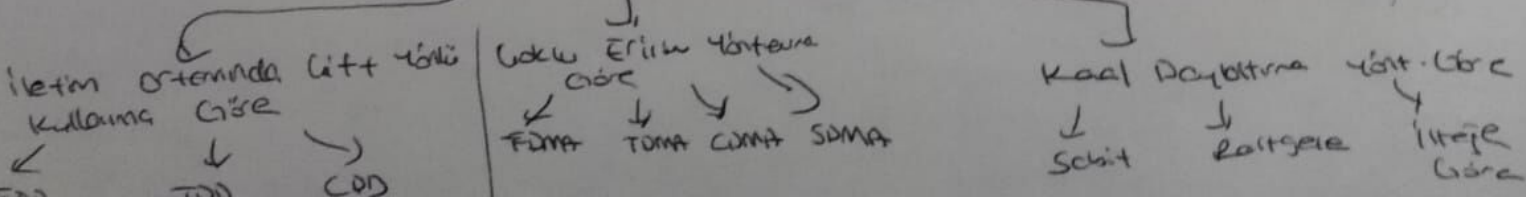 İletim Ortamında Çift Yönlü
Kullanıma Göre
TDD CDD
Çoklu Erişim Yöntemine
Göre
FDMA TDMA CDMA SDMA
Kanal Dağıtma Yönt. Göre
Sabit Rastgele İsteğe
Göre